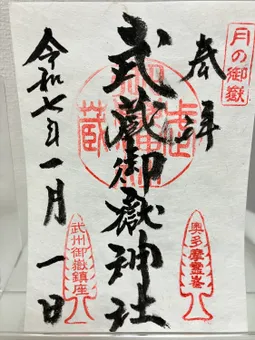 月の御嶽
奉拝
武蔵御嶽神社
令和七年一月一日
奥多摩霊峯
武州御嶽鎮座